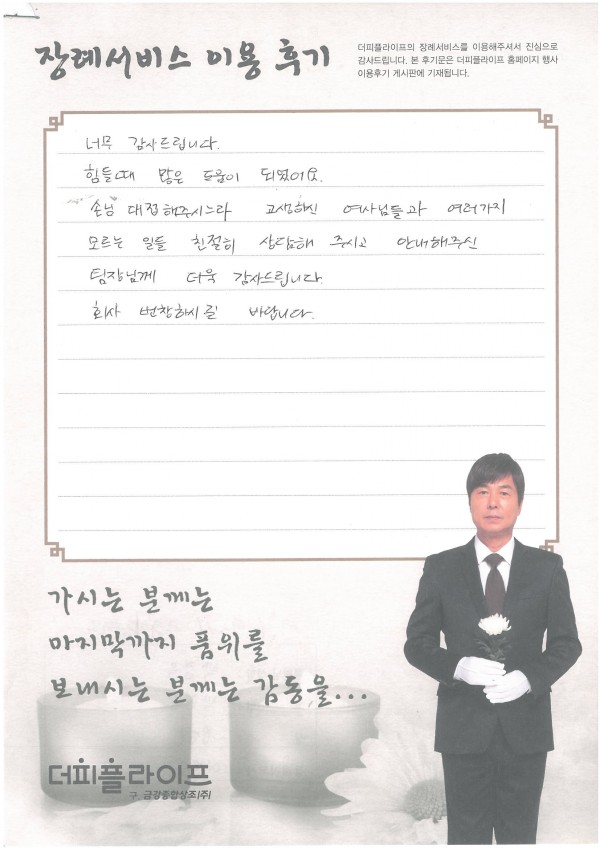 장례서비스 이용 후기
더피플라이프의 장례서비스를 이용해주셔서 진심으로
감사드립니다. 본 후기문은 더피플라이프 홈페이지 행사
이용후기 게시판에 기재됩니다.
너무 감사드립니다.
힘들때 많은 도움이 되었어요.
손님 대접해주시느라 고생하신 여사님들과 여러가지
모르는 일들 친절히 상담해 주시고 안내해주신
팀장님께 더욱 감사드립니다.
회사 번창하시길 바랍니다.
가시는 분께는
마지막까지 품위를
보내시는 분께는 감동을...
더피플라이프
구. 금강종합상조(주)